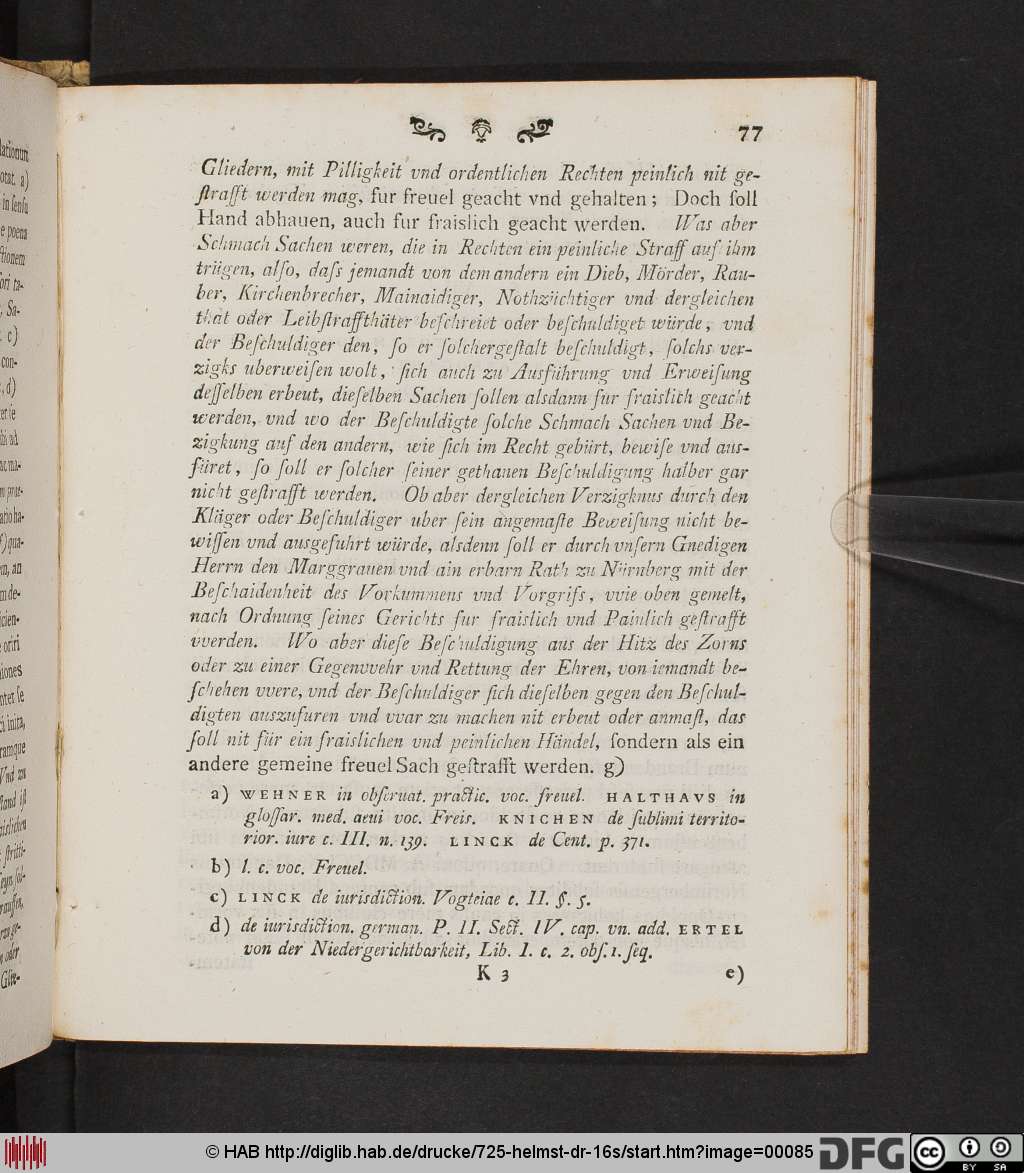 77
Gliedern, mit Pilligkeit vnd ordentlichen Rechten peinlich nit ge-
ſtrafft werden mag, fur freuel geacht vnd gehalten; Doch ſoll
Hand abhauen, auch fur fraislich geacht werden. Was aber
Schmach Sachen weren, die in Rechten ein peinliche Straff auf ihm
trügen, alſo, daſs jemandt von dem andern ein Dieb, Mörder, Rau-
ber, Kirchenbrecher, Mainaidiger, Nothzüchtiger vnd dergleichen
that oder Leibſtraffthäter beſchreiet oder beſchuldiget würde, vnd
der Beſchuldiger den, ſo er ſolchergeſtalt beſchuldigt, ſolchs ver-
zigks uberweiſen wolt, ſich auch zu Ausführung vnd Erweiſung
deſſelben erbeut, dieſelben Sachen ſollen alsdann fur fraislich geacht
werden, vnd wo der Beſchuldigte ſolche Schmach Sachen vnd Be-
zigkung auf den andern, wie ſich im Recht gebürt, bewiſe vnd aus-
füret, ſo ſoll er ſolcher ſeiner gethanen Beſchuldigung halber gar
nicht geſtrafft werden. Ob aber dergleichen Verzigknus durch den
Kläger oder Beſchuldiger uber ſein angemaſte Beweiſung nicht be-
wiſſen vnd ausgefuhrt würde, alsdenn ſoll er durch vnſern Gnedigen
Herrn den Marggrauen vnd ain erbarn Rath zu Nürnberg mit der
Beſchaidenheit des Vorkummens vnd Vorgriſs, vvie oben gemelt,
nach Ordnung ſeines Gerichts fur fraislich vnd Painlich geſtrafft
vverden. Wo aber dieſe Beſchuldigung aus der Hitz des Zorns
oder zu einer Gegenvvehr vnd Rettung der Ehren, von iemandt be-
ſchehen vvere, vnd der Beſchuldiger ſich dieſelben gegen den Beſchul-
digten auszufuren vnd vvar zu machen nit erbeut oder anmaſt, das
ſoll nit für ein fraislichen vnd peinlichen Händel, ſondern als ein
andere gemeine freuel Sach geſtrafft werden. g)
a) WEHNER in obſeruat. practic. voc. freuel. HALTHAVS in
gloſſar. med. aeui voc. Freis. KNICHEN de ſublimi territo-
rior. iure c. III. n. 139. LINCK de Cent. p. 371.
b) l. c. voc. Freuel.
c) LINCK de iurisdiction. Vogteiae c. II. §. 5.
d) de iurisdiction. german. P. II. Sect. IV. cap. vn. add. ERTEL
von der Niedergerichtbarkeit, Lib. I. c. 2. obſ. 1. ſeq.
K 3 e)
© HAB http://diglib.hab.de/drucke/725-helmst-dr-16s/start.htm?image=00085 DFG cc BY SA